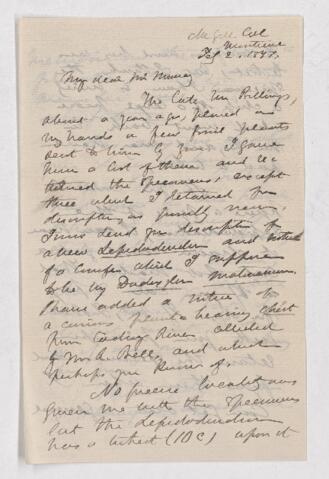 McGill Col
Montreal
Feb 2. 1877.
My dear Mr Murray
The late Mr Billings,
about a year ago, placed in
my hands a few fossil plants
sent to him by you. I gave
him a list of them and re
turned the specimens, except
three which I retained for
description as possibly new.
I now send you description of
a new Lepidodendron and
of a conifer which I suppose
to be my Dadoxylon
I have added a notice of
a curious plant bearing
from River collected
by Mr R. Bell, and which
perhaps you know of.
No precise localities were
given me with the specimens
but the Lepidodendron
has a ticket (10C) upon it